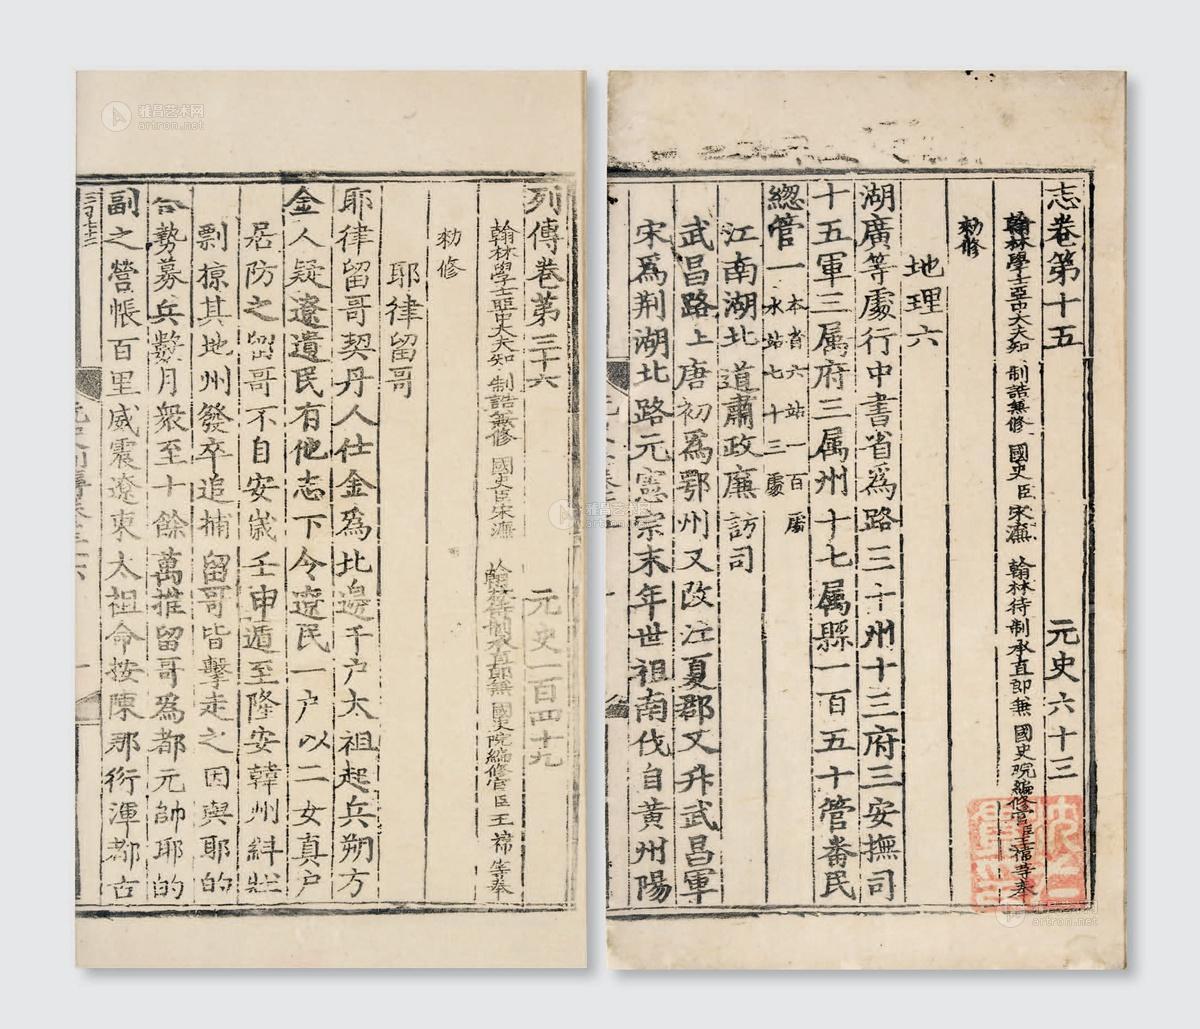 志卷第十五 元史六十三
翰林學士亞中大夫知 制誥兼修 國史臣宋濂 翰林待制承直郎兼 國史院編修官臣王禕等奉
勑修
地理六
湖廣等處行中書省為路三十州十三府三安撫司
十五軍三属府三属州十七属縣一百五十管番民
緫管一本省六站一百處水站七十三處
江南湖北道肅政廉訪司
武昌路上唐初為鄂州又改江夏郡又升武昌軍
宋為荆湖北路元憲宗末年世祖南伐自黄州陽
列傳卷第三十六 元史一百四十九
翰林學士亞中大夫知 制誥兼修 國史臣宋濂 翰林待制承直郎兼 國史院編修官臣王禕等奉
勑修
耶律留哥
耶律留哥契丹人仕金為北邊千户太祖起兵朔方
金人疑遼遺民有他志下令遼民一户以二女真户
居防之留哥不自安歳壬申遁至隆安韓州糾壯
剽掠其地州發卒追捕留哥皆擊走之因與耶的
合勢募兵數月衆至十餘萬推留哥為都元帥耶的
副之營帳百里威震遼東太祖命按陳那衍渾都古
雅昌艺术网
artron.net
雅昌艺术网
artron.net
artron.net